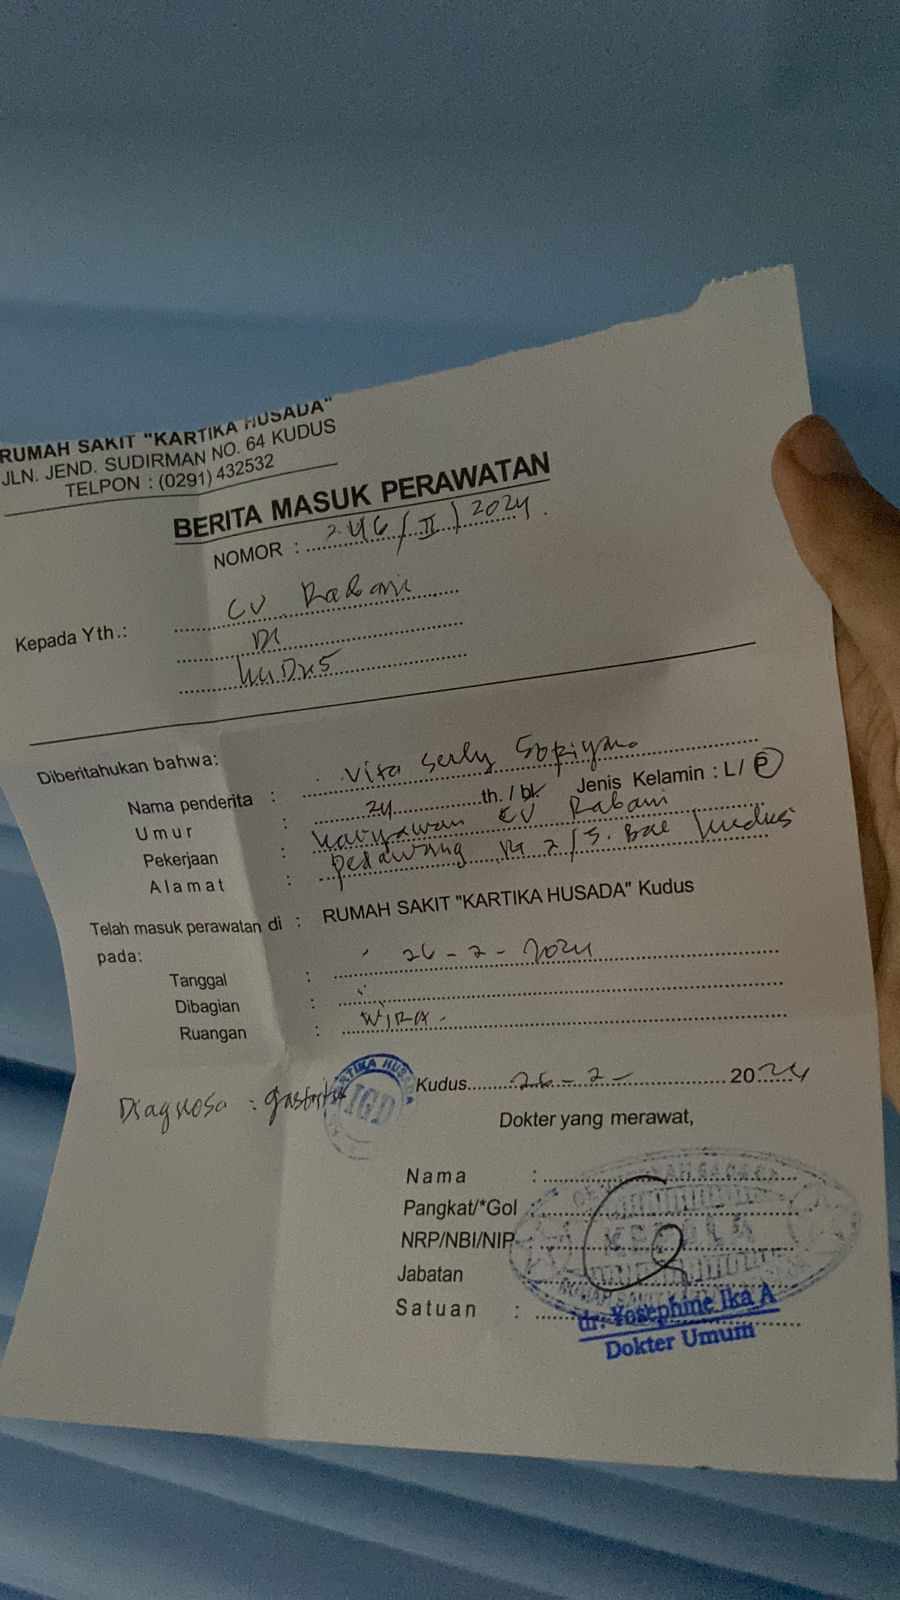 RUMAH SAKIT "KARTIKA HUSADA"
JLN. JEND. SUDIRMAN NO. 64 KUDUS
TELPON : (0291) 432532
BERITA MASUK PERAWATAN
NOMOR : 246/II/2024
Kepada Yth.: CV Rabani
Di
Kudus
Diberitahukan bahwa:
Nama penderita : Vita Serly
Umur : 24 th. / bl. Jenis Kelamin : L / P
Pekerjaan : Karyawan CV Rabani
Alamat : Pedawang Rt 2/5 Bae Kudus
Telah masuk perawatan di : RUMAH SAKIT "KARTIKA HUSADA" Kudus
pada:
Tanggal : 26-2-2024
Dibagian :
Ruangan : WIRA
Diagnosa : gastritis
KARTIKA HUSADA
IGD
Kudus 26-2- 2024
Dokter yang merawat,
Nama :
Pangkat/*Gol :
NRP/NBI/NIP :
Jabatan
Satuan :
dr. Yosephine Ika A
Dokter Umum